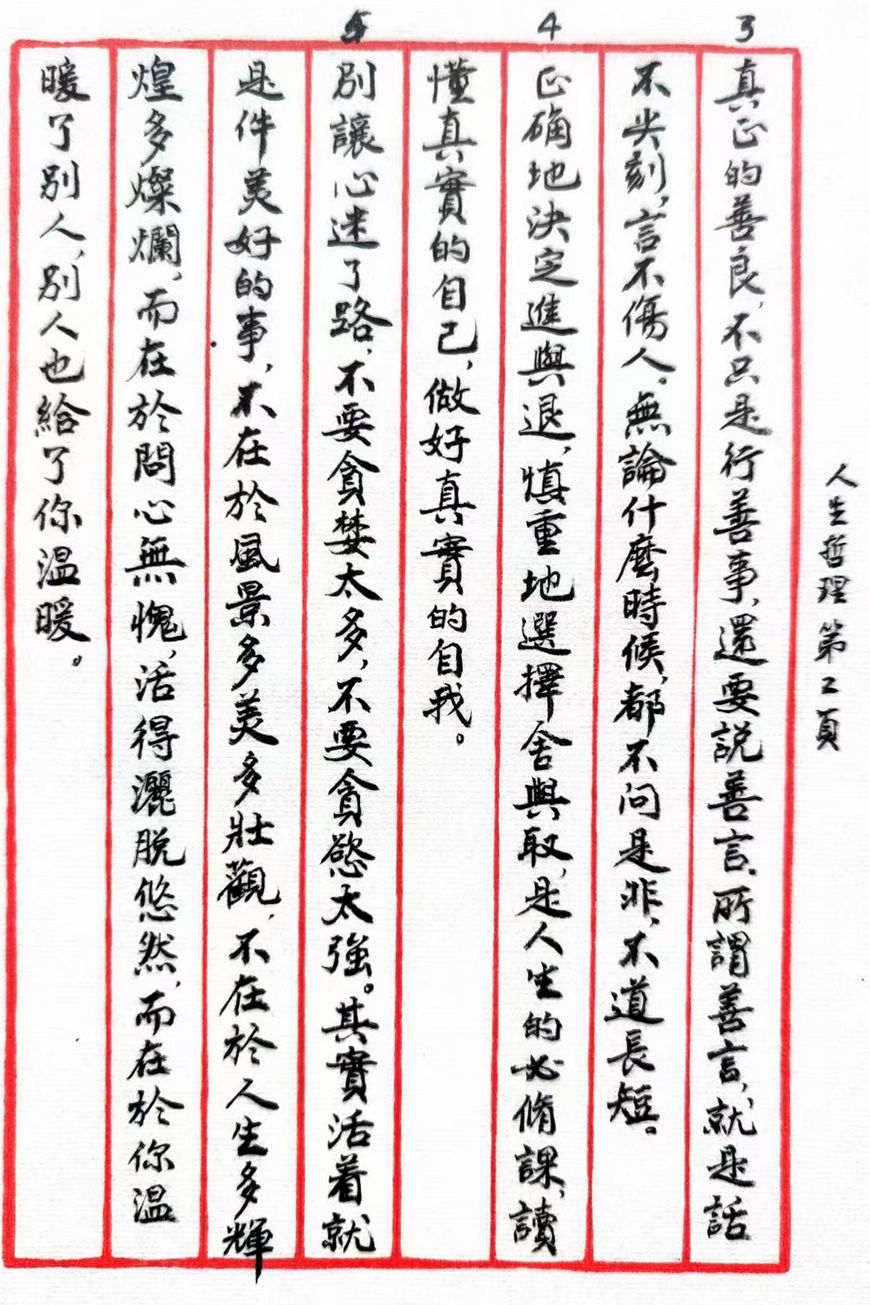 人生哲理第2頁
3
真正的善良，不只是行善事，還要説善言。所謂善言，就是話
不尖刻，言不傷人。無論什麽時候，都不问是非，不道長短。
4
正确地決定進與退，慎重地選擇舍與取，是人生的必脩課，讀
懂真實的自己，做好真實的自我。
5
别讓心迷了路，不要貪婪太多，不要貪慾太強。其實活着就
是件美好的事，不在於風景多美多壯觀，不在於人生多輝
煌多燦爛，而在於問心無愧，活得灑脱悠然，而在於你温
暖了别人，别人也給了你温暖。